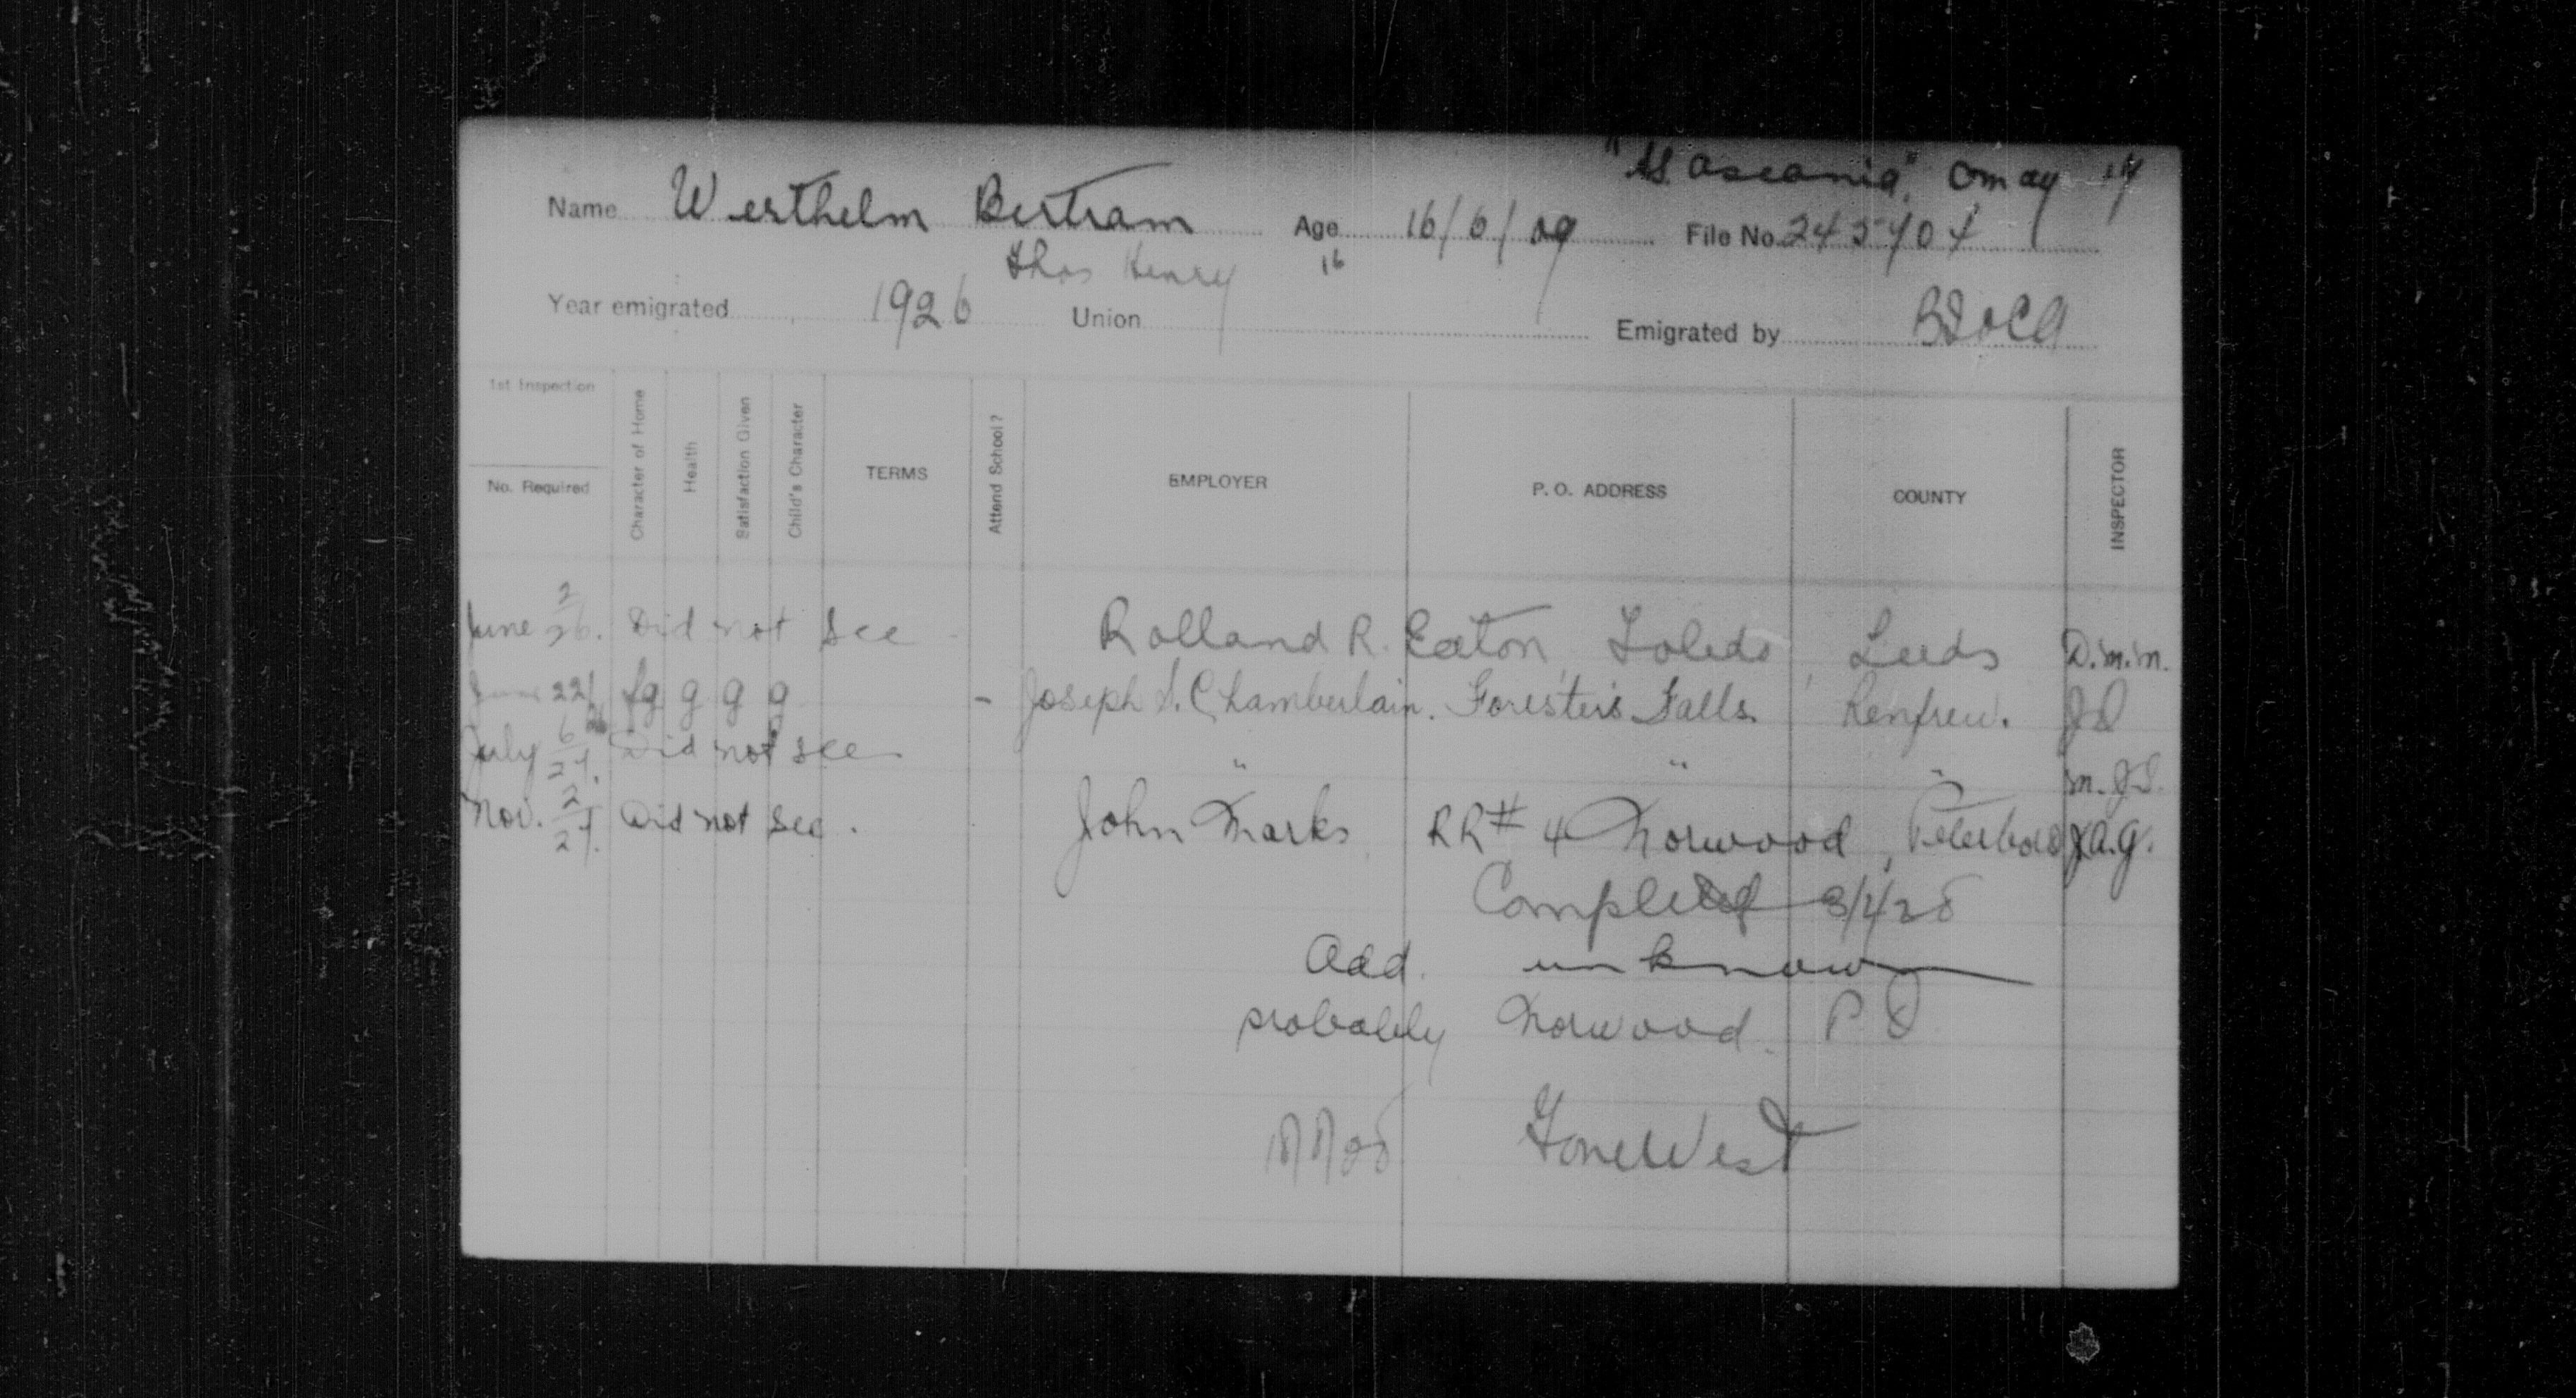 "SS. Ascania", May 14
Name Werthelm Bertram Age 16/6/09 File No. 245404
Thos Henry 16
Year emigrated 1926 Union Emigrated by
1st Inspection
No. Required Character of Home Health Satisfaction Given Child's Character TERMS Attend School? EMPLOYER P. O. ADDRESS COUNTY INSPECTOR
June 2/26. Did not see - Rolland R. Eaton, Toledo, Leeds D.M.M.
June 22/26 fg g g g - Joseph S. Chamberlain. Forester's Falls. Renfrew.
July 6/27. Did not see " " "
Nov. 2/27. Did not see. John Marks, RR# 4 Norwood, Peterboro J.A.G.
Completed 3/4/28
Add. unknown
probably Norwood. P.O
Gone West